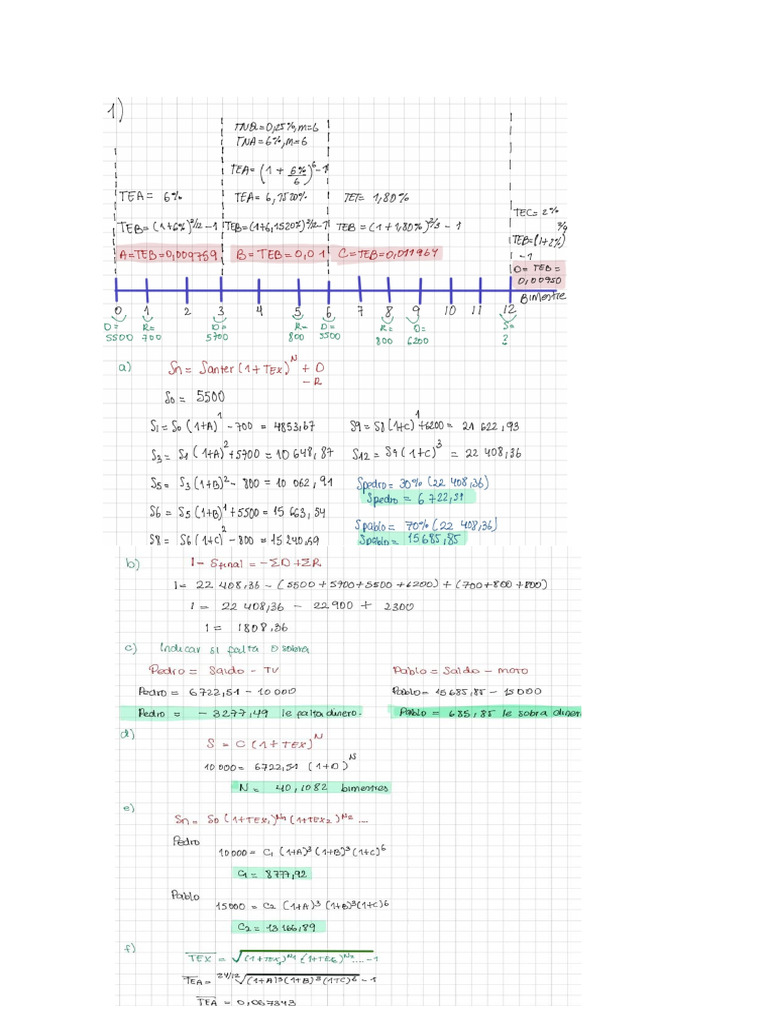 1)
TNB=0,25%, m=6
TNA= 6%, m=6
TEA= (1 + 6%/6)^6 -1
TEA= 6%
TEA= 6,1520%
TET= 1,80%
TEC= 2%
TEB=(1+6%)^2/12 -1
TEB=(1+6,1520%)^2/12 -1
TEB = (1+1,80%)^2/3 - 1
TEB=(1+2%)
-1
A=TEB=0,009759
B= TEB = 0,01
C=TEB=0,011964
D= TEB=
0,00950
0 1 2 3 4 5 6 7 8 9 10 11 12
Bimestre
D= 5500
R= 700
D= 5700
R= 800
D= 5500
R= 800
D= 6200
S= ?
a)
Sn= Santer (1+TEX)^N + D
- R
S0 = 5500
S1= S0 (1+A)^1 -700 = 4853,67
S9= S8 (1+C)^1 +6200 = 21 622,93
S3= S1 (1+A)^2 +5700 = 10 648,87
S12= S9 (1+C)^3 = 22 408,36
S5= S3 (1+B)^2 - 800 = 10 062,91
Spedro= 30% (22 408,36)
Spedro = 6 722,51
S6= S5 (1+B)^1 +5500 = 15 663,54
Spablo= 70% (22 408,36)
S8= S6 (1+C)^2 -800 = 15 240,59
Spablo= 15 685,85
b)
I= Sfinal = -ΣD +ΣR
I= 22 408,36 - (5500 +5900+5500 +6200) + (700+800+800)
I = 22 408,36 - 22 900 + 2300
I = 1808,36
c) Indicar si falta o sobra
Pedro = Saldo - TV
Pablo= Saldo - moto
Pedro = 6722,51 - 10 000
Pablo= 15 685,85 - 15 000
Pedro = - 3277,49 le falta dinero.
Pablo = 685,85 le sobra diner
d)
S = C (1+TEX)^N
10 000= 6722,51 (1+D)^N
N = 40,1082 bimestres
e)
Sn= S0 (1+TEX1)^N1 (1+TEX2)^N2 ....
Pedro
10 000 = C1 (1+A)^3 (1+B)^3 (1+C)^6
C1 = 8777,92
Pablo
15000 = C2 (1+A)^3 (1+B)^3 (1+C)^6
C2 = 13 166,89
f)
TEX = √(1+TEX1)^N1 (1+TEX2)^N2 .... -1
TEA = 24/12√(1+A)^3 (1+B)^3 (1+C)^6 -1
TEA = 0,067343